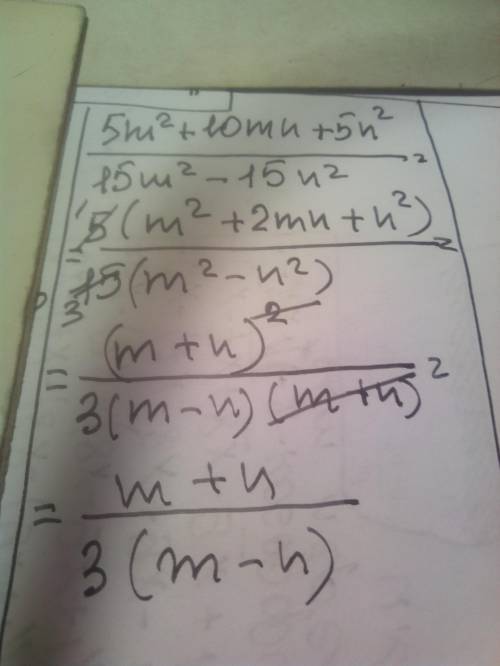 5m²+10mn+5n²
15m²-15n² =
¹5(m²+2mn+n²) =
3 15(m²-n²)
= (m+n)² =
3(m-n)(m+n)
= m+n
3(m-n)